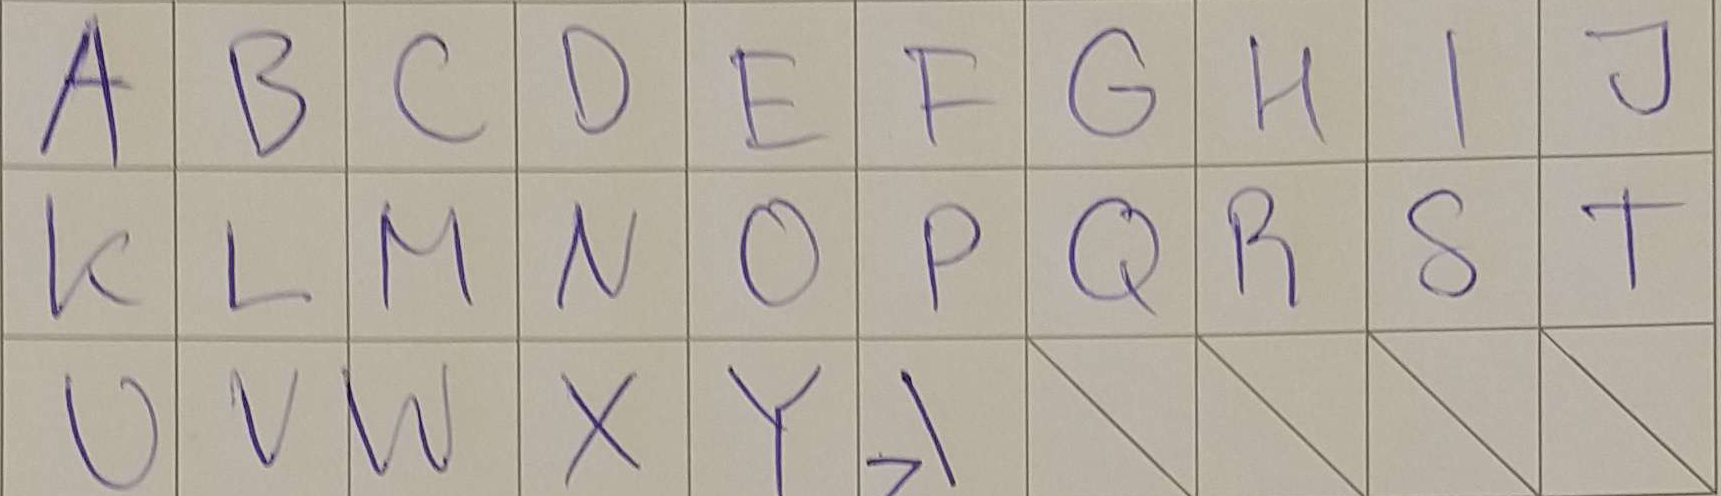 A B C D E F G H I J
K L M N O P Q R S T
U V W X Y